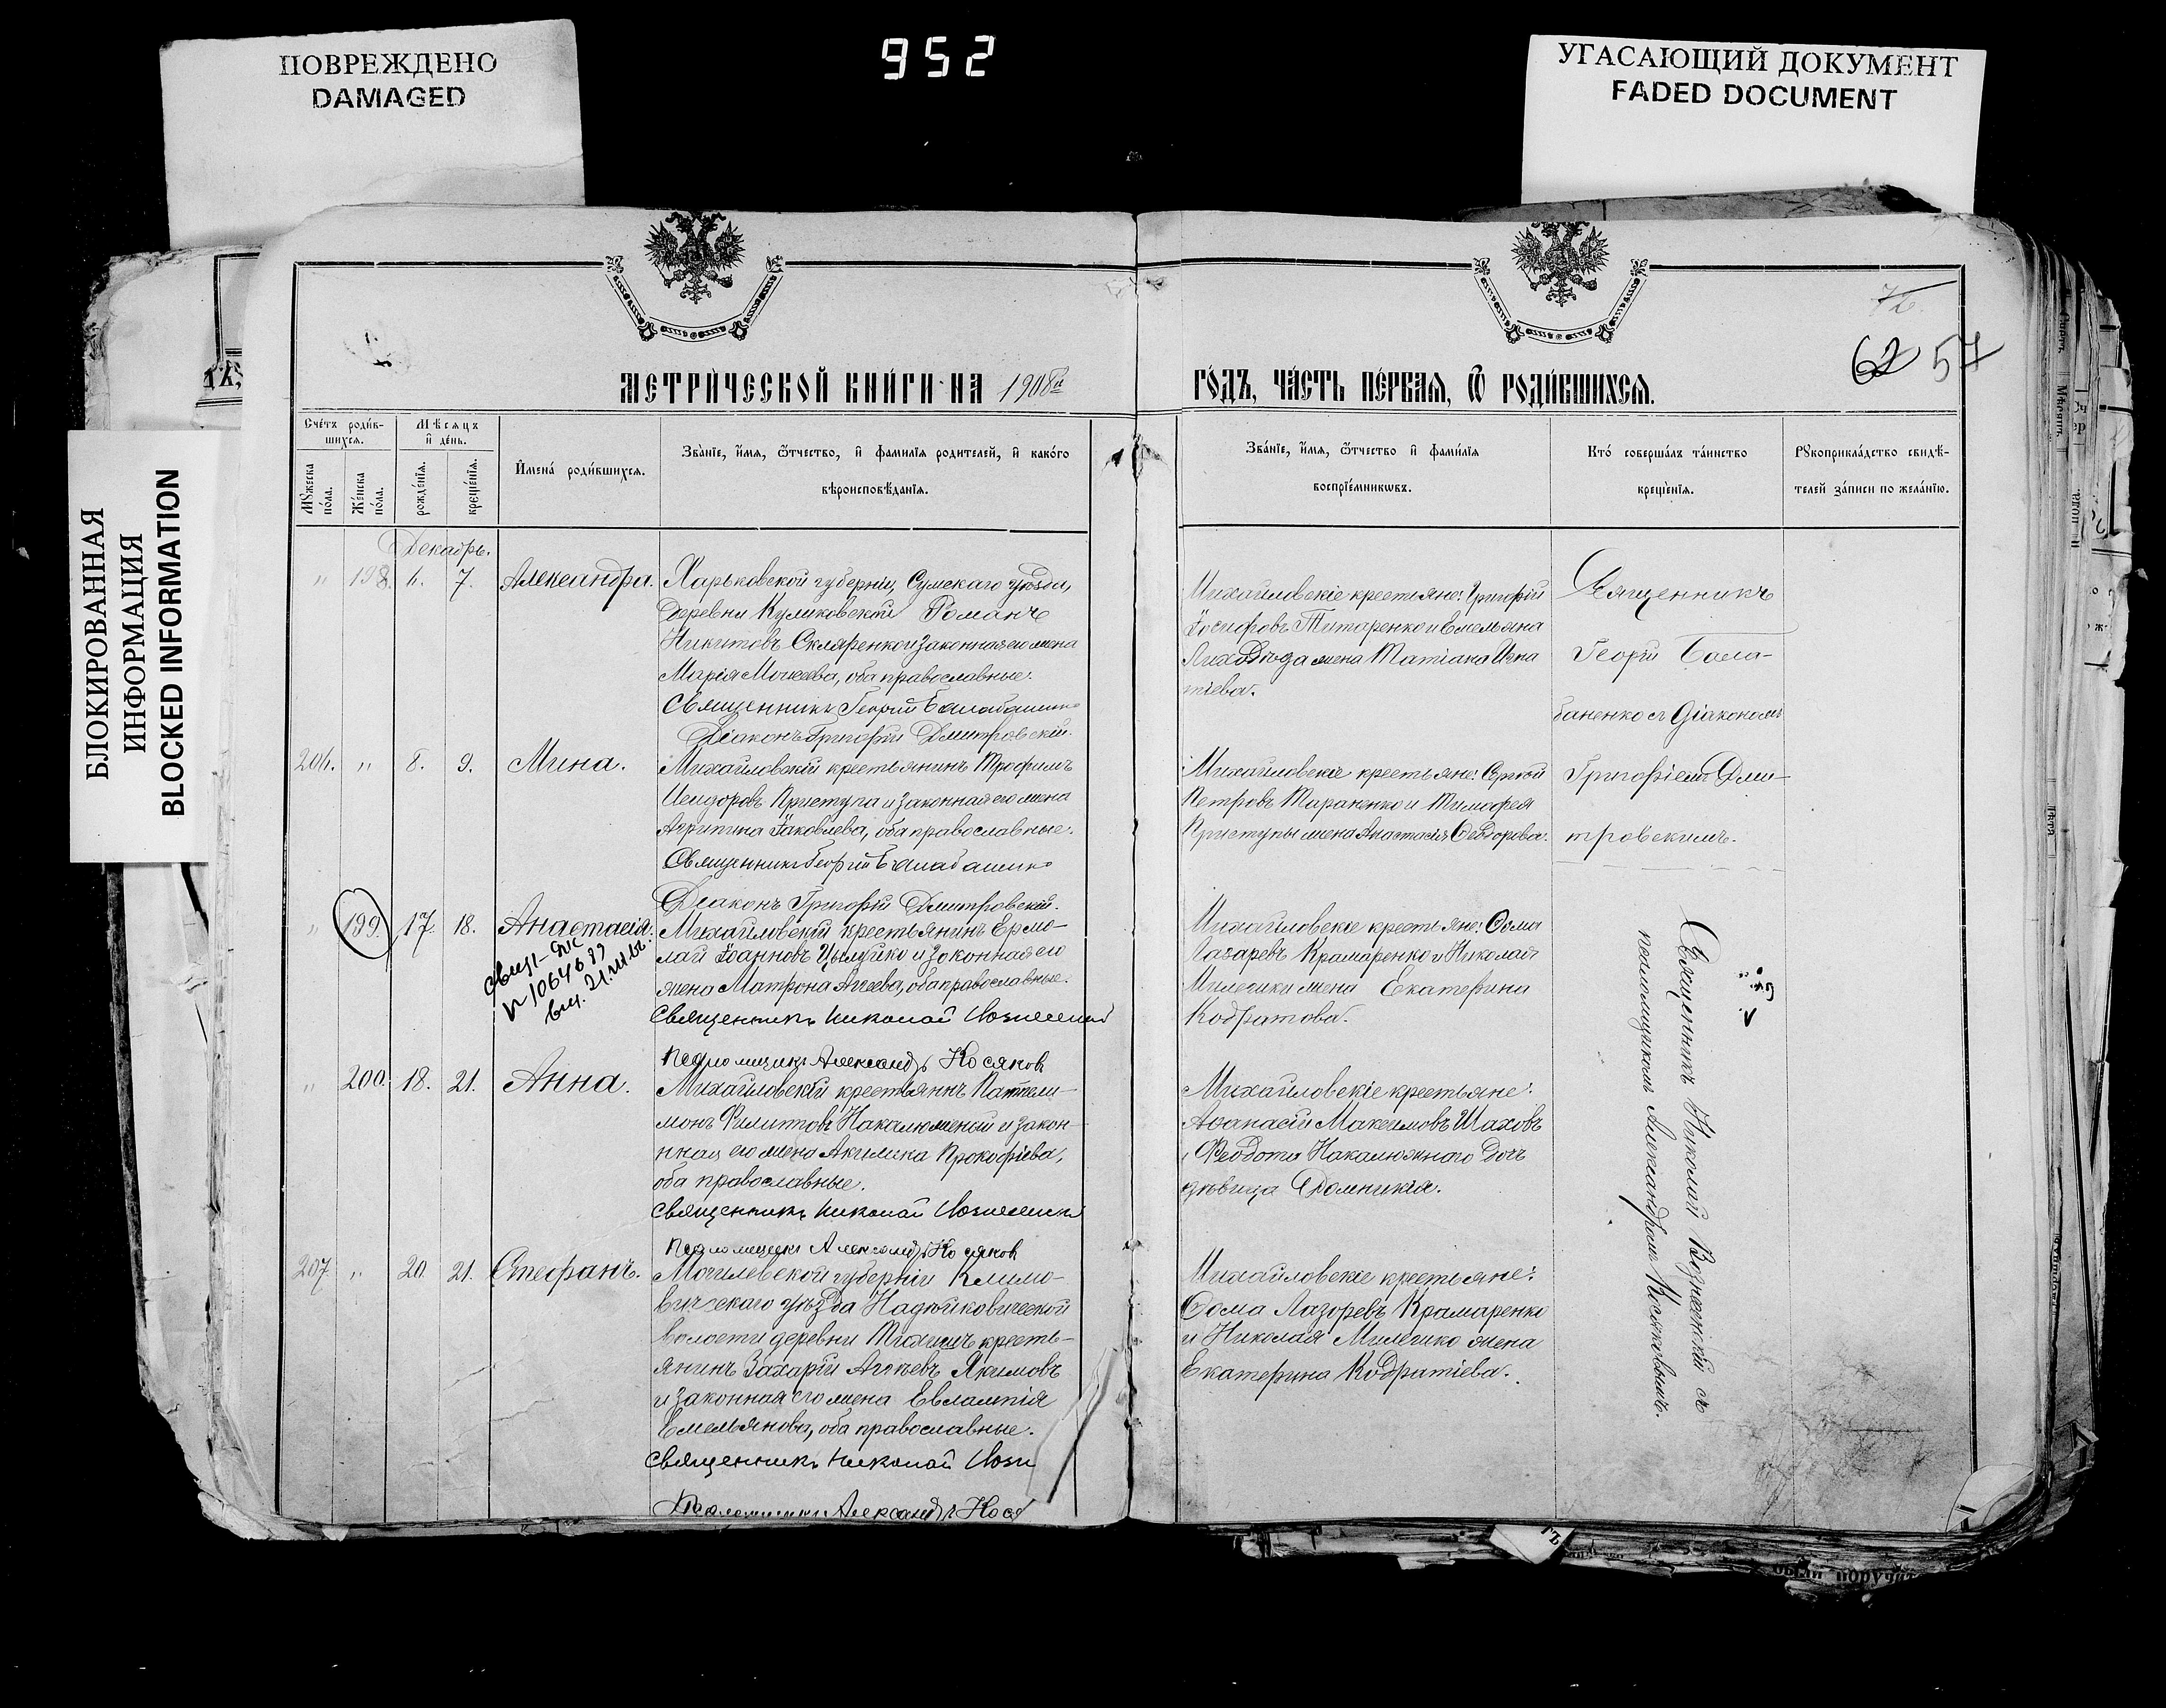 ПОВРЕЖДЕНО
DAMAGED
952
УГАСАЮЩИЙ ДОКУМЕНТ
FADED DOCUMENT
БЛОКИРОВАННАЯ
ИНФОРМАЦИЯ
BLOCKED INFORMATION
76
62 57
МЕТРИЧЕСКОЙ КНИГИ НА 1908й
ГОДЪ, ЧАСТЬ ПЕРВАЯ, Ѿ РОДИВШИХСЯ.
Счетъ родив-
шихся.
Мѣсяцъ
и день.
Мужеска
пола.
Женска
пола.
рожденія.
крещенія.
Имена родившихся.
Званіе, имя, ѿтчество, и фамилія родителей, и какого
вѣроисповѣданія.
Званіе, имя, ѿтчество и фамилія
воспріемниковъ.
Кто совершалъ таинство
крещенія.
Рукоприкладство свидѣ-
телей записи по желанію.
Декабрь.
" 198. 6. 7. Александра.
Харьковской губерніи, Сумскаго уѣзда,
деревни Куликовской Романъ
Никитовъ Скляренко и законная его жена
Марія Моисеева, оба православные.
Священникъ Георгій
Діаконъ Григорій Дмитровскій.
Михайловскіе крестьяне: Григорій
Іосифовъ Титаренко и Емельяна
жена Татіана Игна
тіева.
Священникъ
Георгій Бала-
баненко съ діакономъ
Григоріемъ Дми-
тровскимъ.
206. " 8. 9. Мина.
Михайловскій крестьянинъ Трофимъ
Исидоровъ Приступа и законная его жена
Агрипина Іаковлева, оба православные.
Священникъ Георгій
Діаконъ Григорій Дмитровскій.
Михайловскіе крестьяне: Сергій
Петровъ Тараненко и Тимофея
Приступы жена Анастасія Ѳеодорова.
" 199. 17. 18. Анастасія.
№ 1064699
Михайловскій крестьянинъ Ермо-
лай Іоанновъ и законная его
жена Матрона Агеева, оба православные.
Священникъ Николай
Псаломщикъ Александръ Косяковъ
Михайловскіе крестьяне: Ѳома
Лазаревъ Крамаренко и Николая
жена Екатерина
Кодратова.
Священникъ Николай Вознесенскій съ
псаломщикомъ Александромъ Косяковымъ.
" 200. 18. 21. Анна.
Михайловскій крестьянинъ Пантели-
монъ Филипповъ Накалюжный и закон
ная его жена Акилина Прокофіева,
оба православные.
Священникъ Николай
Псаломщикъ Александръ Косяковъ
Михайловскіе крестьяне:
Аѳанасій Максимовъ Шаховъ
Ѳеодота Накалюжнаго дочь
дѣвица Домникія.
207 " 20. 21. Стефанъ.
Могилевской губерніи Климо-
вичскаго уѣзда Надѣйковической
волости деревни кресть-
янинъ Захарій Агѣевъ Якимовъ
и законная его жена Евлампія
Емельянова, оба православные.
Священникъ Николай Возн
Псаломщикъ Александръ Кося
Михайловскіе крестьяне:
Ѳома Лазоревъ Крамаренко
и Николая жена
Екатерина Кодратіева.